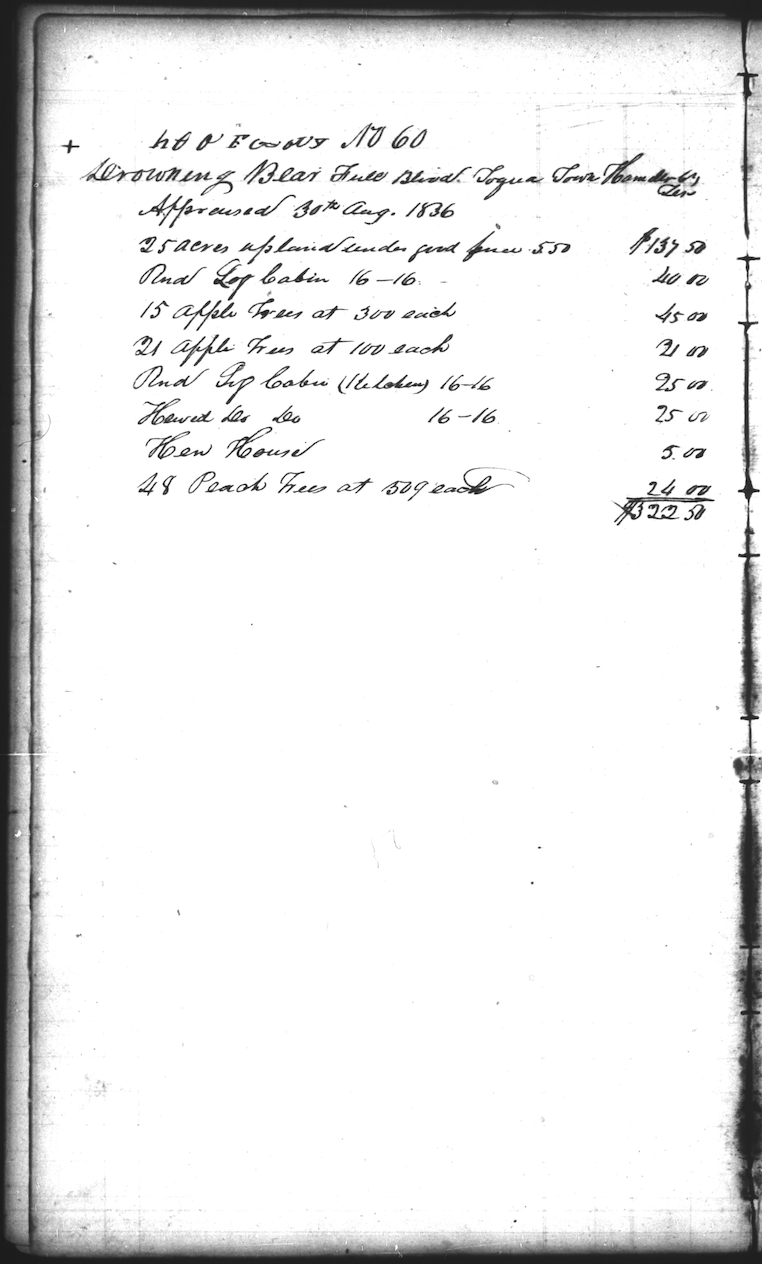 + NO 60
Drowning Bear Full Blood. Toqua Town Hamilton Cy
Ten
Appraised 30th Aug. 1836
25 acres upland under good fence 550 $137 50
Rnd Log Cabin 16-16 40 00
15 apple Trees at 300 each 45 00
21 apple Trees at 100 each 21 00
Rnd Log Cabin (Kitchen) 16-16 25 00
Hewed Do Do 16-16 25 00
Hen House 5.00
48 Peach Trees at 50¢ each 24 00
$322 50